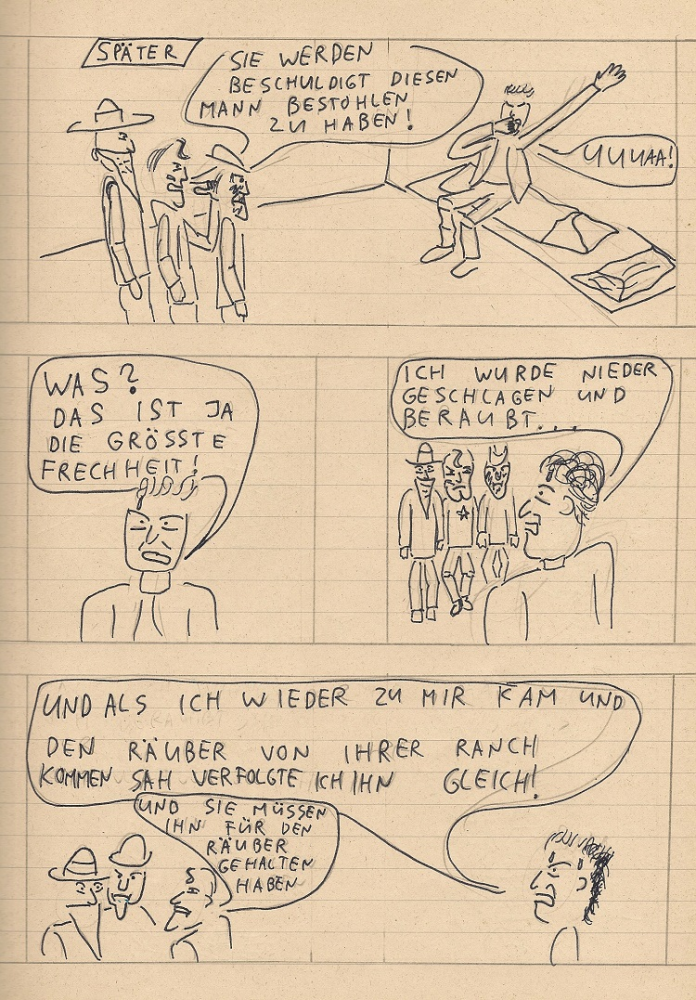 SPÄTER
SIE WERDEN
BESCHULDIGT DIESEN
MANN BESTOHLEN
ZU HABEN!
UUUAA!
WAS?
DAS IST JA
DIE GRÖSSTE
FRECHHEIT!
ICH WURDE NIEDER
GESCHLAGEN UND
BERAUBT...
UND ALS ICH WIEDER ZU MIR KAM UND
DEN RÄUBER VON IHRER RANCH
KOMMEN SAH VERFOLGTE ICH IHN GLEICH!
UND SIE MÜSSEN
IHN FÜR DEN
RÄUBER
GEHALTEN
HABEN